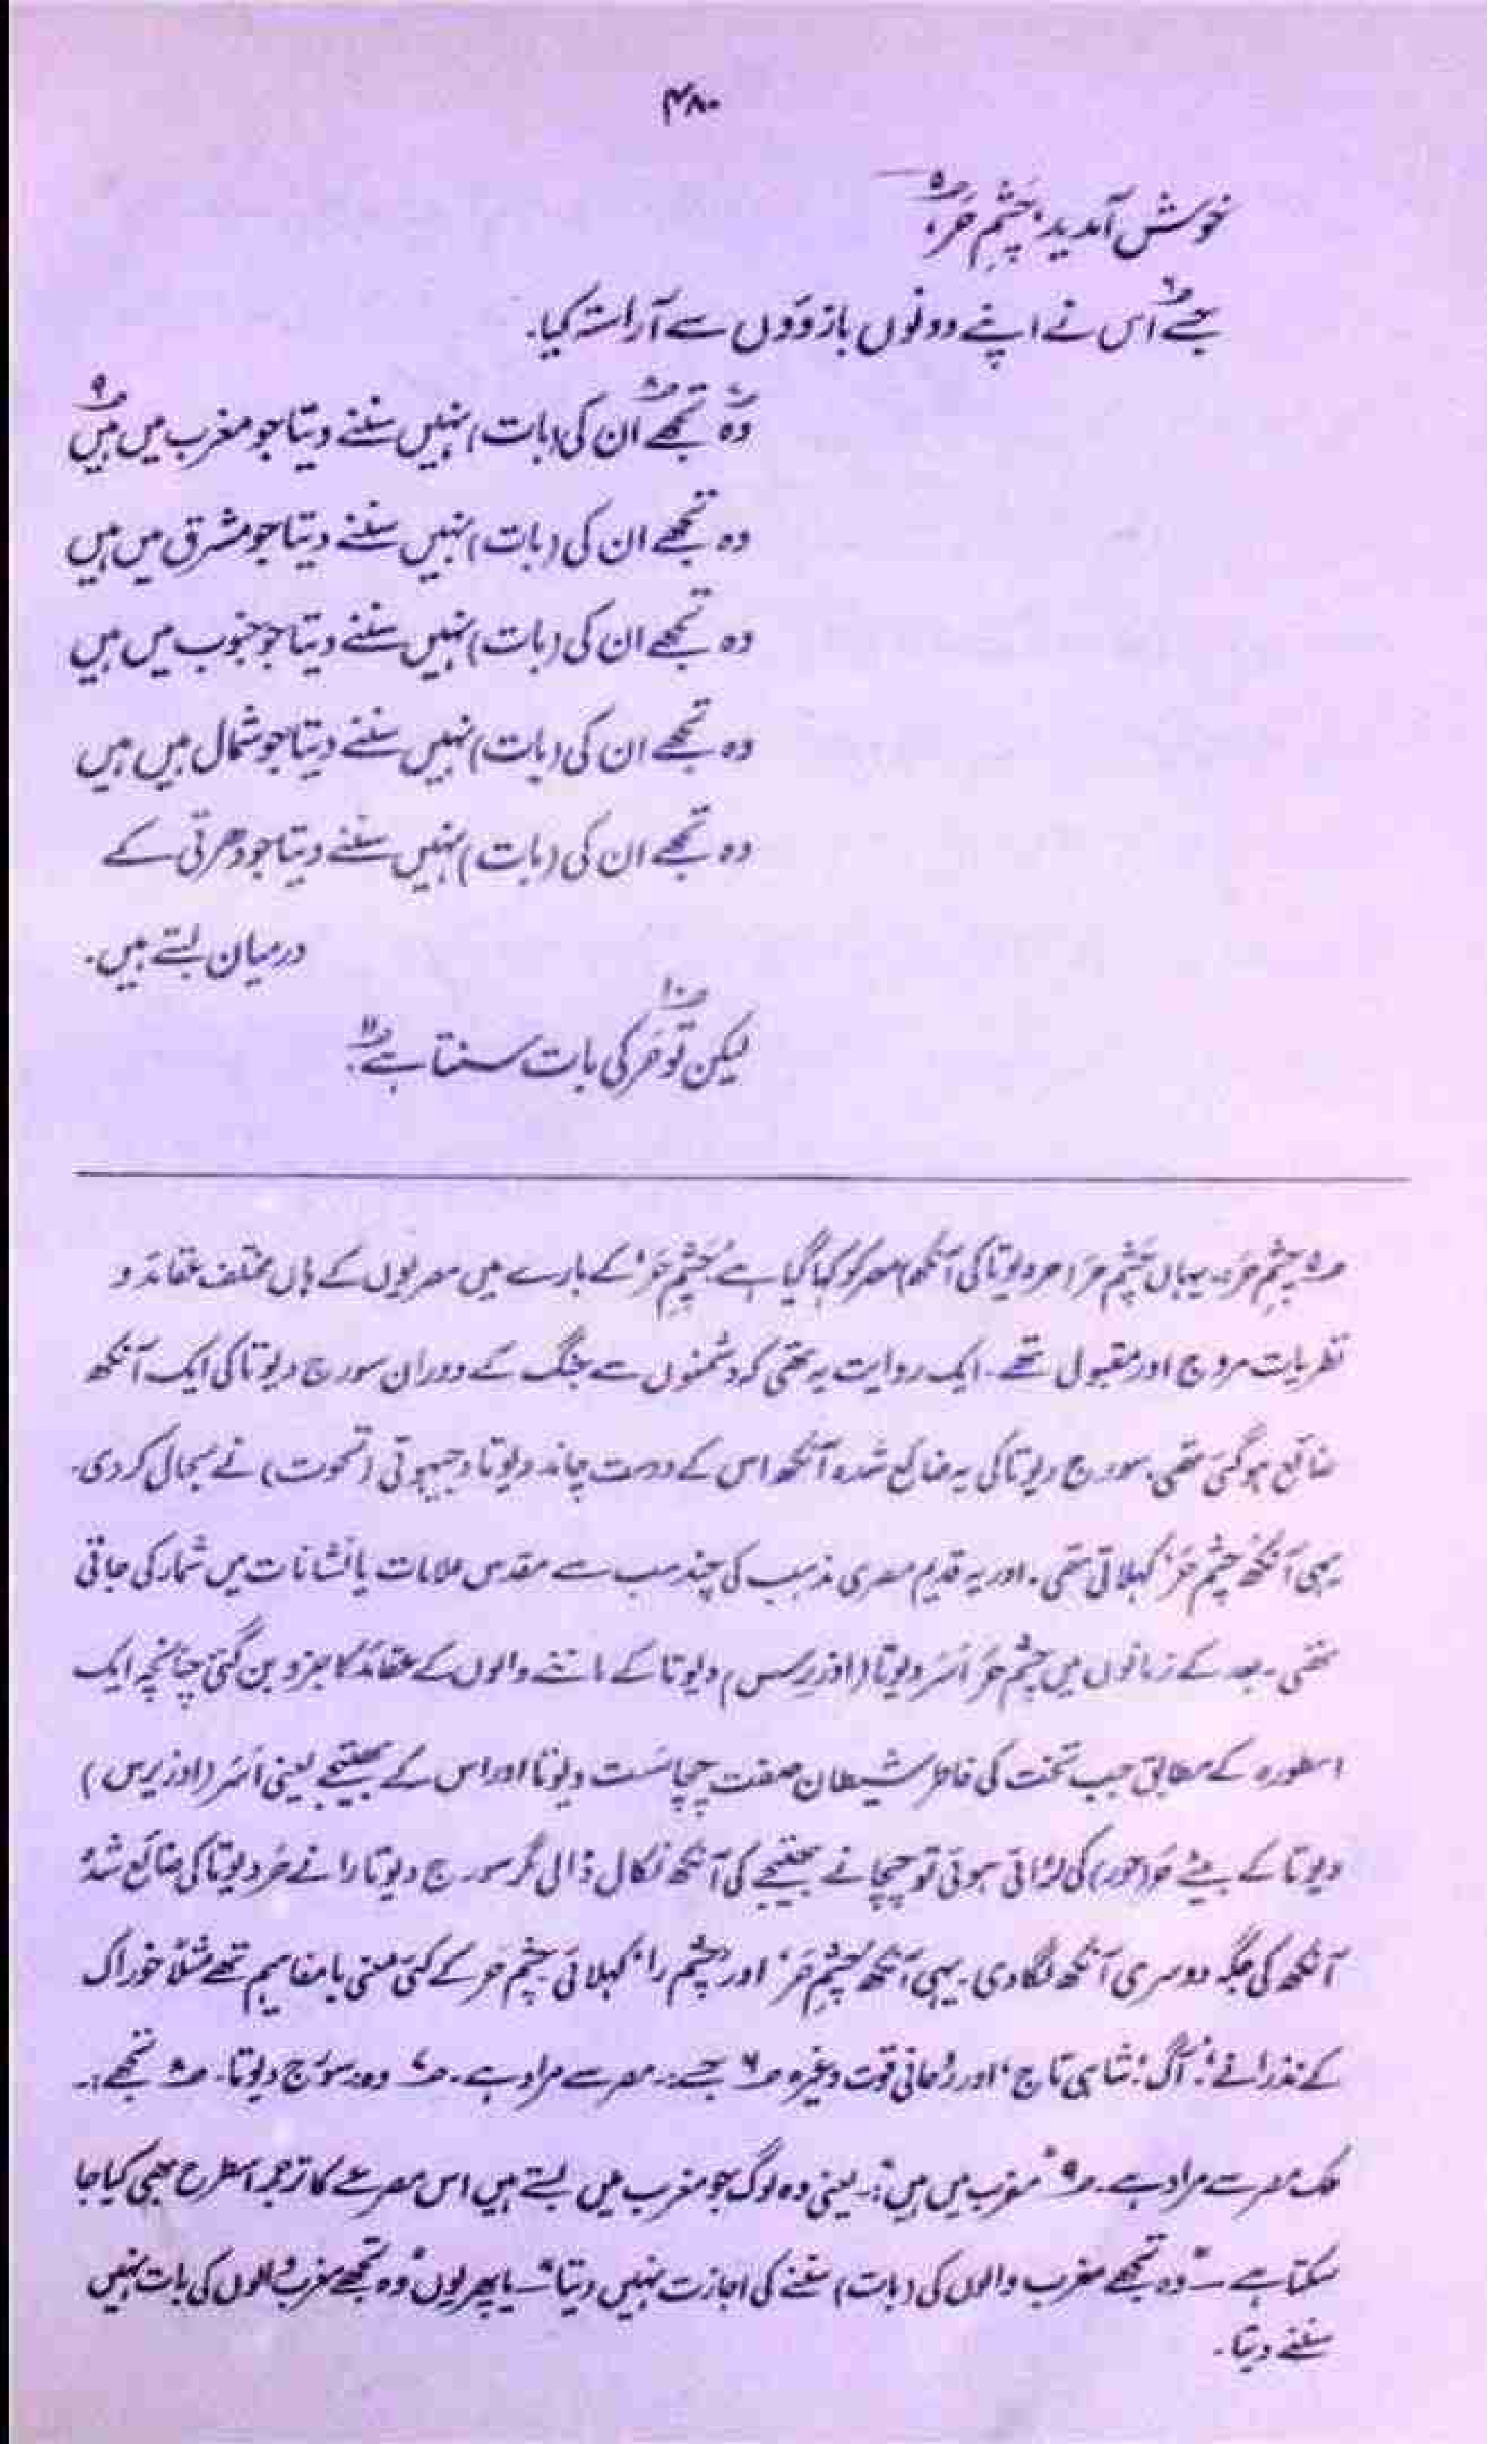 ۴۸۰
خوش آمدید، چشمِ حَر،؎۵
جسے؎۶ اس نے اپنے دونوں بازوؤں سے آراستہ کیا۔
وہ؎۷ تجھے؎۸ ان کی (بات) نہیں سننے دیتا جو مغرب میں ہیں؎۹
وہ تجھے ان کی (بات) نہیں سننے دیتا جو مشرق میں ہیں
وہ تجھے ان کی (بات) نہیں سننے دیتا جو جنوب میں ہیں
وہ تجھے ان کی (بات) نہیں سننے دیتا جو شمال میں ہیں
وہ تجھے ان کی (بات) نہیں سننے دیتا جو دھرتی کے
درمیان بستے ہیں۔
لیکن تو؎۱۰ حَر کی بات سنتا ہے؎۱۱۔
؎۵ چشمِ حَر:۔ یہاں چشمِ حَر (حر دیوتا کی آنکھ) مصر کو کہا گیا ہے ’چشمِ حَر‘ کے بارے میں مصریوں کے ہاں مختلف عقائد و
نظریات مروج اور مقبول تھے۔ ایک روایت یہ تھی کہ دشمنوں سے جنگ کے دوران سورج دیوتا کی ایک آنکھ
ضائع ہو گئی تھی۔ سورج دیوتا کی یہ ضائع شدہ آنکھ اس کے دوست چاند دیوتا دجیہوتی (تحوت) نے بحال کر دی۔
یہی آنکھ ’چشم حَر‘ کہلاتی تھی۔ اور یہ قدیم مصری مذہب کی چند سب سے مقدس علامات یا نشانات میں شمار کی جاتی
تھی۔ بعد کے زمانوں میں چشم حَر اَسَر دیوتا (اوزیرس) دیوتا کے ماننے والوں کے عقائد کا جزو بن گئی چنانچہ ایک
اسطورہ کے مطابق جب تخت کی خاطر شیطان صفت چچا سَت دیوتا اور اس کے بھتیجے یعنی اَسَر (اوزیرس)
دیوتا کے بیٹے حَر (حور) کی لڑائی ہوئی تو چچا نے بھتیجے کی آنکھ نکال ڈالی مگر سورج دیوتا را نے حَر دیوتا کی ضائع شدہ
آنکھ کی جگہ دوسری آنکھ لگا دی۔ یہی آنکھ ’چشمِ حَر‘ اور ’چشم را‘ کہلائی۔ چشم حَر کے کئی معنی یا مفاہیم تھے مثلاً خوراک
کے نذرانے‘، ’آگ‘، ’شاہی تاج‘ اور رُوحانی قوت وغیرہ ؎۶ جسے:۔ مصر سے مراد ہے۔ ؎۷ وہ:۔ سورج دیوتا۔ ؎۸ تجھے:۔
ملک مصر سے مراد ہے۔ ؎۹ ”مغرب میں ہیں“:۔ یعنی وہ لوگ جو مغرب میں بستے ہیں اس مصرعے کا ترجمہ اسطرح بھی کیا جا
سکتا ہے — ”وہ تجھے مغرب والوں کی (بات) سننے کی اجازت نہیں دیتا“ — یا پھر یوں ”وہ تجھے مغرب والوں کی بات نہیں
سننے دیتا۔